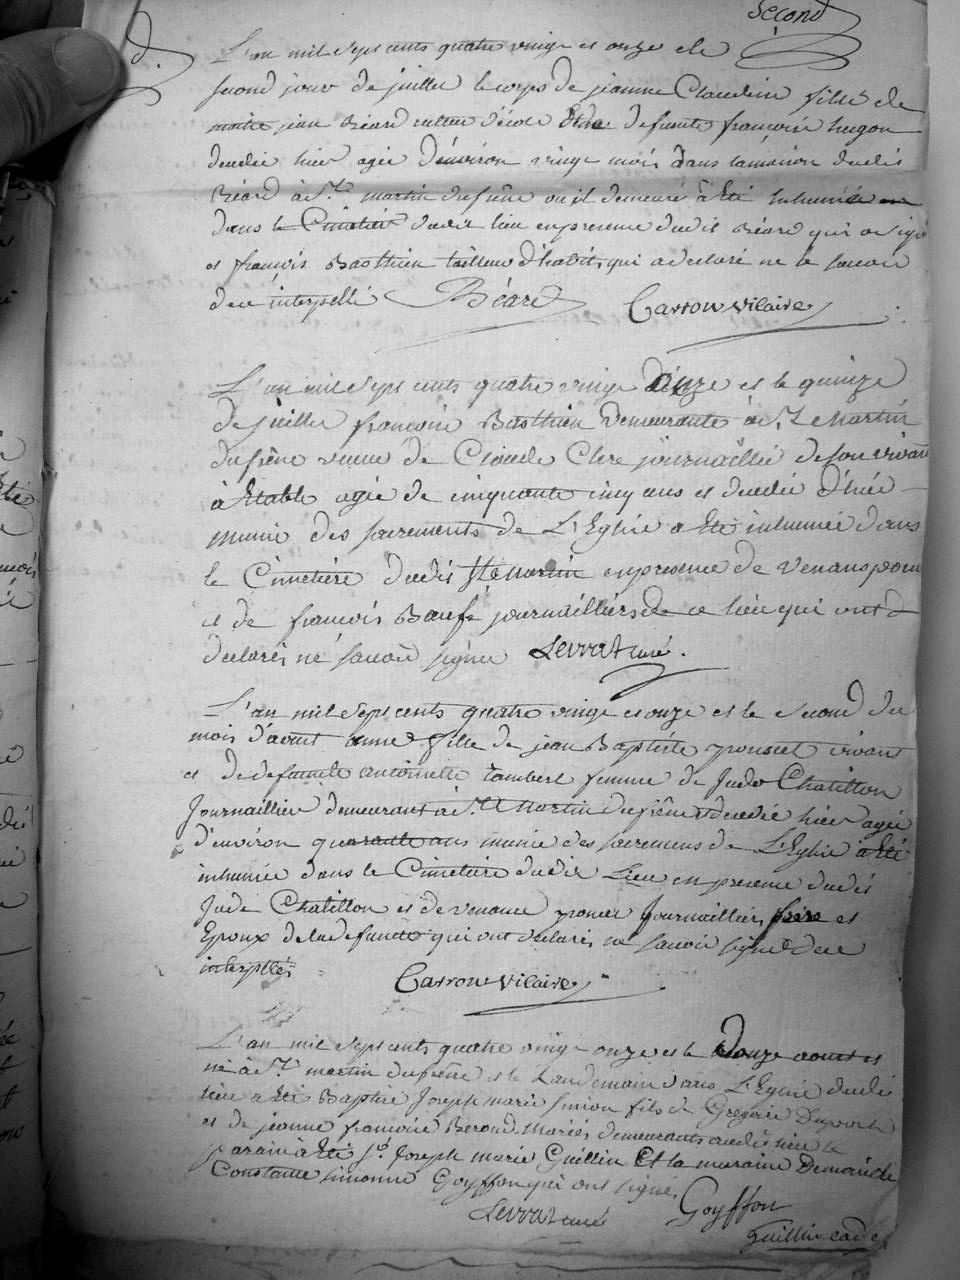 Second
d.
L'an mil sept cents quatre vingt et onze et le
second jour de juillet le corps de jeanne Claudine fille de
maitre jean Béard d'école de defunte françoise hugon
decedée hier agée d'environ vingt mois dans la maison dudit
Béard à St martin dufrêne ou il demeure à Eté inhumée
dans le Cimetière dudit lieu en presence dudit Béard qui a signé
et françois Basthien tailleur d'habits qui a declaré ne le savoir
de ce interpellé Béard Carron vilaire
L'an mil sept cents quatre vingt onze et le quinze
de juillet françoise Basthien demeurante à St Martin
dufrêne veuve de Claude Clerc journaillié de son vivant
à Etable agée de cinquante cinq ans et decedée d'hier
munie des sacrements de L'Eglise a Eté inhumée dans
le Cimetière dudit St Martin en presence de venans
et de françois Bauf journailliers de ce lieu qui ont
declarés ne savoir signer Levrat curé.
L'an mil sept cents quatre vingt et onze et le second du
mois d'aout anne fille de jean Baptiste vivant
et de defunte antoinette Lambert femme de Jude Chatillon
Journaillier demeurant à St Martin dufrêne decedée hier agée
d'environ quarante ans munie des sacremens de L'Eglise a Eté
inhumée dans le Cimetière dudit Lieu en presence dudit
Jude Chatillon et de venance Journaillier frère et
Epoux de la defuncte qui ont declarés ne savoir signer de ce
interpellés
Carron vilaire
L'an mil sept cents quatre vingt onze et le Douze aoust est
né à St martin dufrêne et le Landemain dans L'Eglise dudit
lieu a Eté Baptisé Joseph marie simon fils de Gregoire
et de jeanne françoise Beroud Mariés demeurants audit lieu le
parain à Eté Sr Joseph marie Guillin Et la maraine Demoiselle
Constance simonne Goyffon qui ont signé,
Levrat curé Goyffon
Guillin cadet